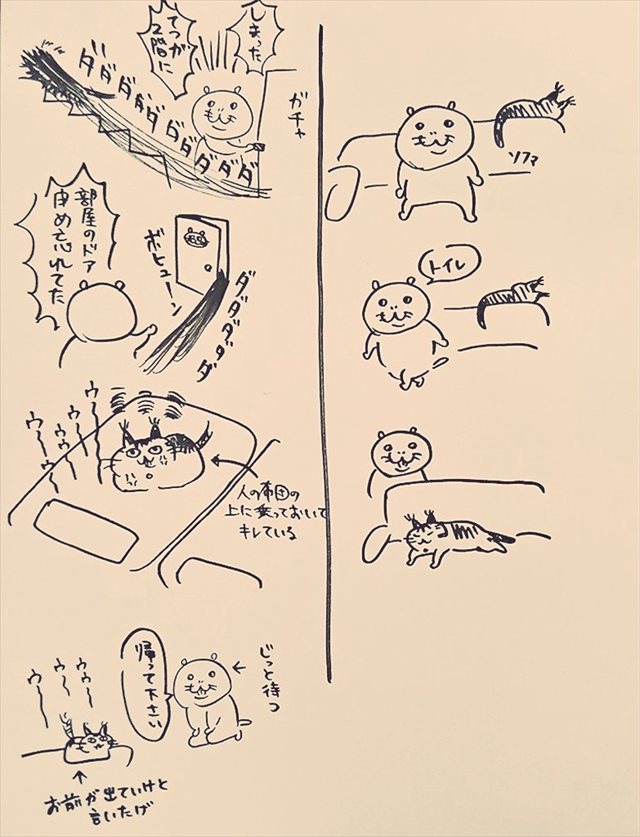 ソファ
トイレ
しまった
てつが
2階に
ガチャ
ダダダダダダダダダダ
部屋のドア
閉め忘れてた
ボヒューン
ダダダダダ
ウ〜
ウ〜
ウゥ〜
ウ〜
人の布団の
上に乗っておいて
キレている
じっと待つ
帰って下さい
ウゥ〜
ウ〜
ウ〜
お前が出ていけと
言いたげ